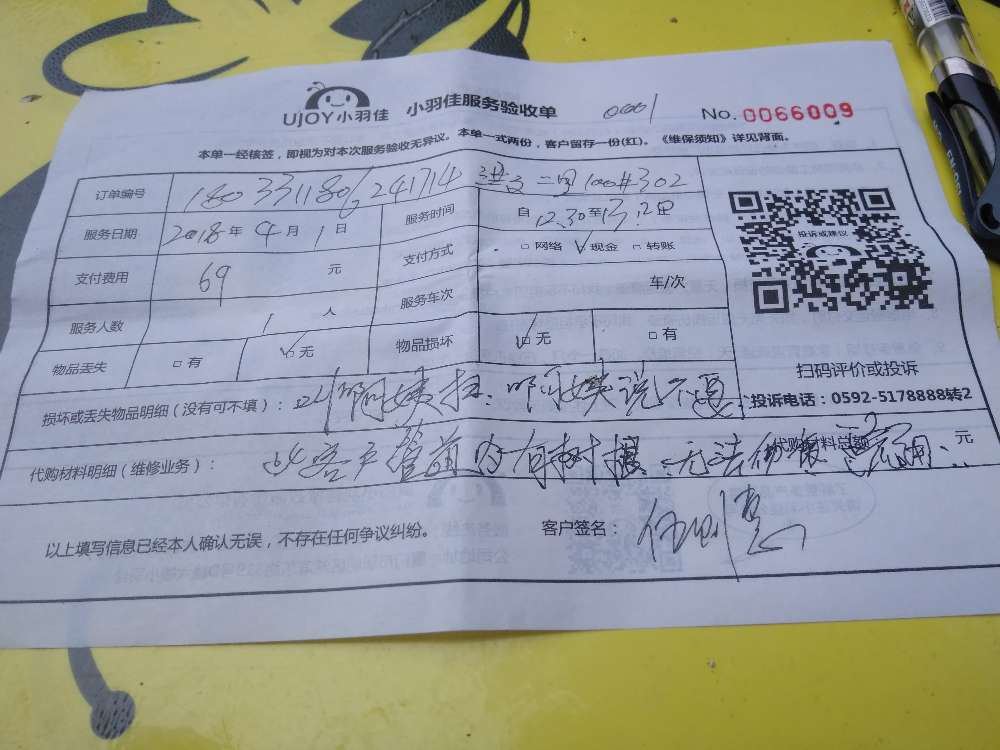 UJOY小羽佳 小羽佳服务验收单 0001 No. 0066009
本单一经核签，即视为对本次服务验收无异议。本单一式两份，客户留存一份(红)。《维保须知》详见背面。
订单编号 302
服务日期 2018年4月1日 服务时间 自12.30至
支付费用 69 元 支付方式 □网络 ☑现金 □转账
服务人数 1 人 服务车次 车/次
物品丢失 □有 ☑无 物品损坏 ☑无 □有
投诉或建议
扫码评价或投诉
投诉电话：0592-5178888转2
损坏或丢失物品明细（没有可不填）： 阿姨 阿姨说不
代购材料明细（维修业务）： 客户管道内有树根 无法 代购材料总额 元
以上填写信息已经本人确认无误，不存在任何争议纠纷。 客户签名：